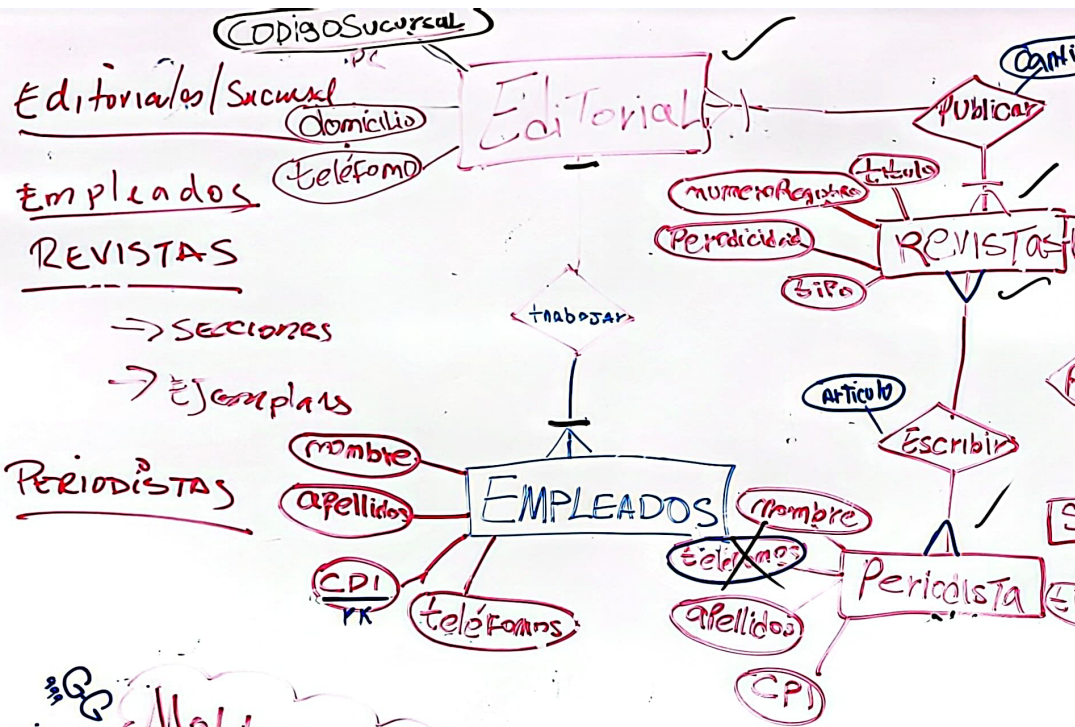 CODigoSucursal
PK
Editoriales/Sucursal
domicilio
teléfono
Editorial
Publicar
Canti
Empleados
REVISTAS
→ SECCIONES
→ Ejemplares
PERIODISTAS
numeroRegistro
titulo
Periodicidad
tipo
REVISTas
trabajar
Articulo
Escribir
nombre
apellidos
CPI
PK
teléfonos
EMPLEADOS
nombre
telefonos
apellidos
CPI
Periodista
S